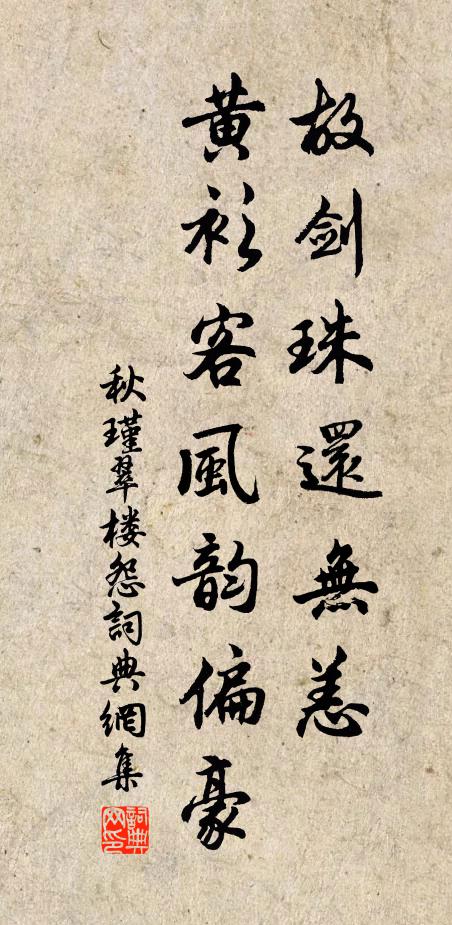 故剑珠還無恙
黄衫客風韵偏豪
秋瑾翠楼怨詞典網集
詞典网印